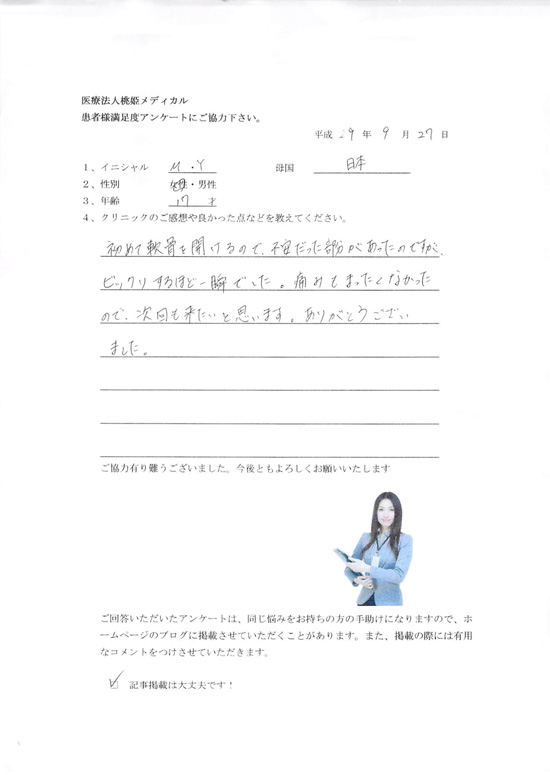 医療法人桃姫メディカル
患者様満足度アンケートにご協力下さい。
平成 29 年 9 月 27 日
1、イニシャル M・Y 母国 日本
2、性別 女性・男性
3、年齢 17 才
4、クリニックのご感想や良かった点などを教えてください。
初めて軟骨を開けるので、不安だった部分があったのですが、
ビックリするほど一瞬でした。痛みもまったくなかった
ので、次回も来たいと思います。ありがとうござい
ました。
ご協力有り難うございました。今後ともよろしくお願いいたします
ご回答いただいたアンケートは、同じ悩みをお持ちの方の手助けになりますので、ホ
ームページのブログに掲載させていただくことがあります。また、掲載の際には有用
なコメントをつけさせていただきます。
記事掲載は大丈夫です！